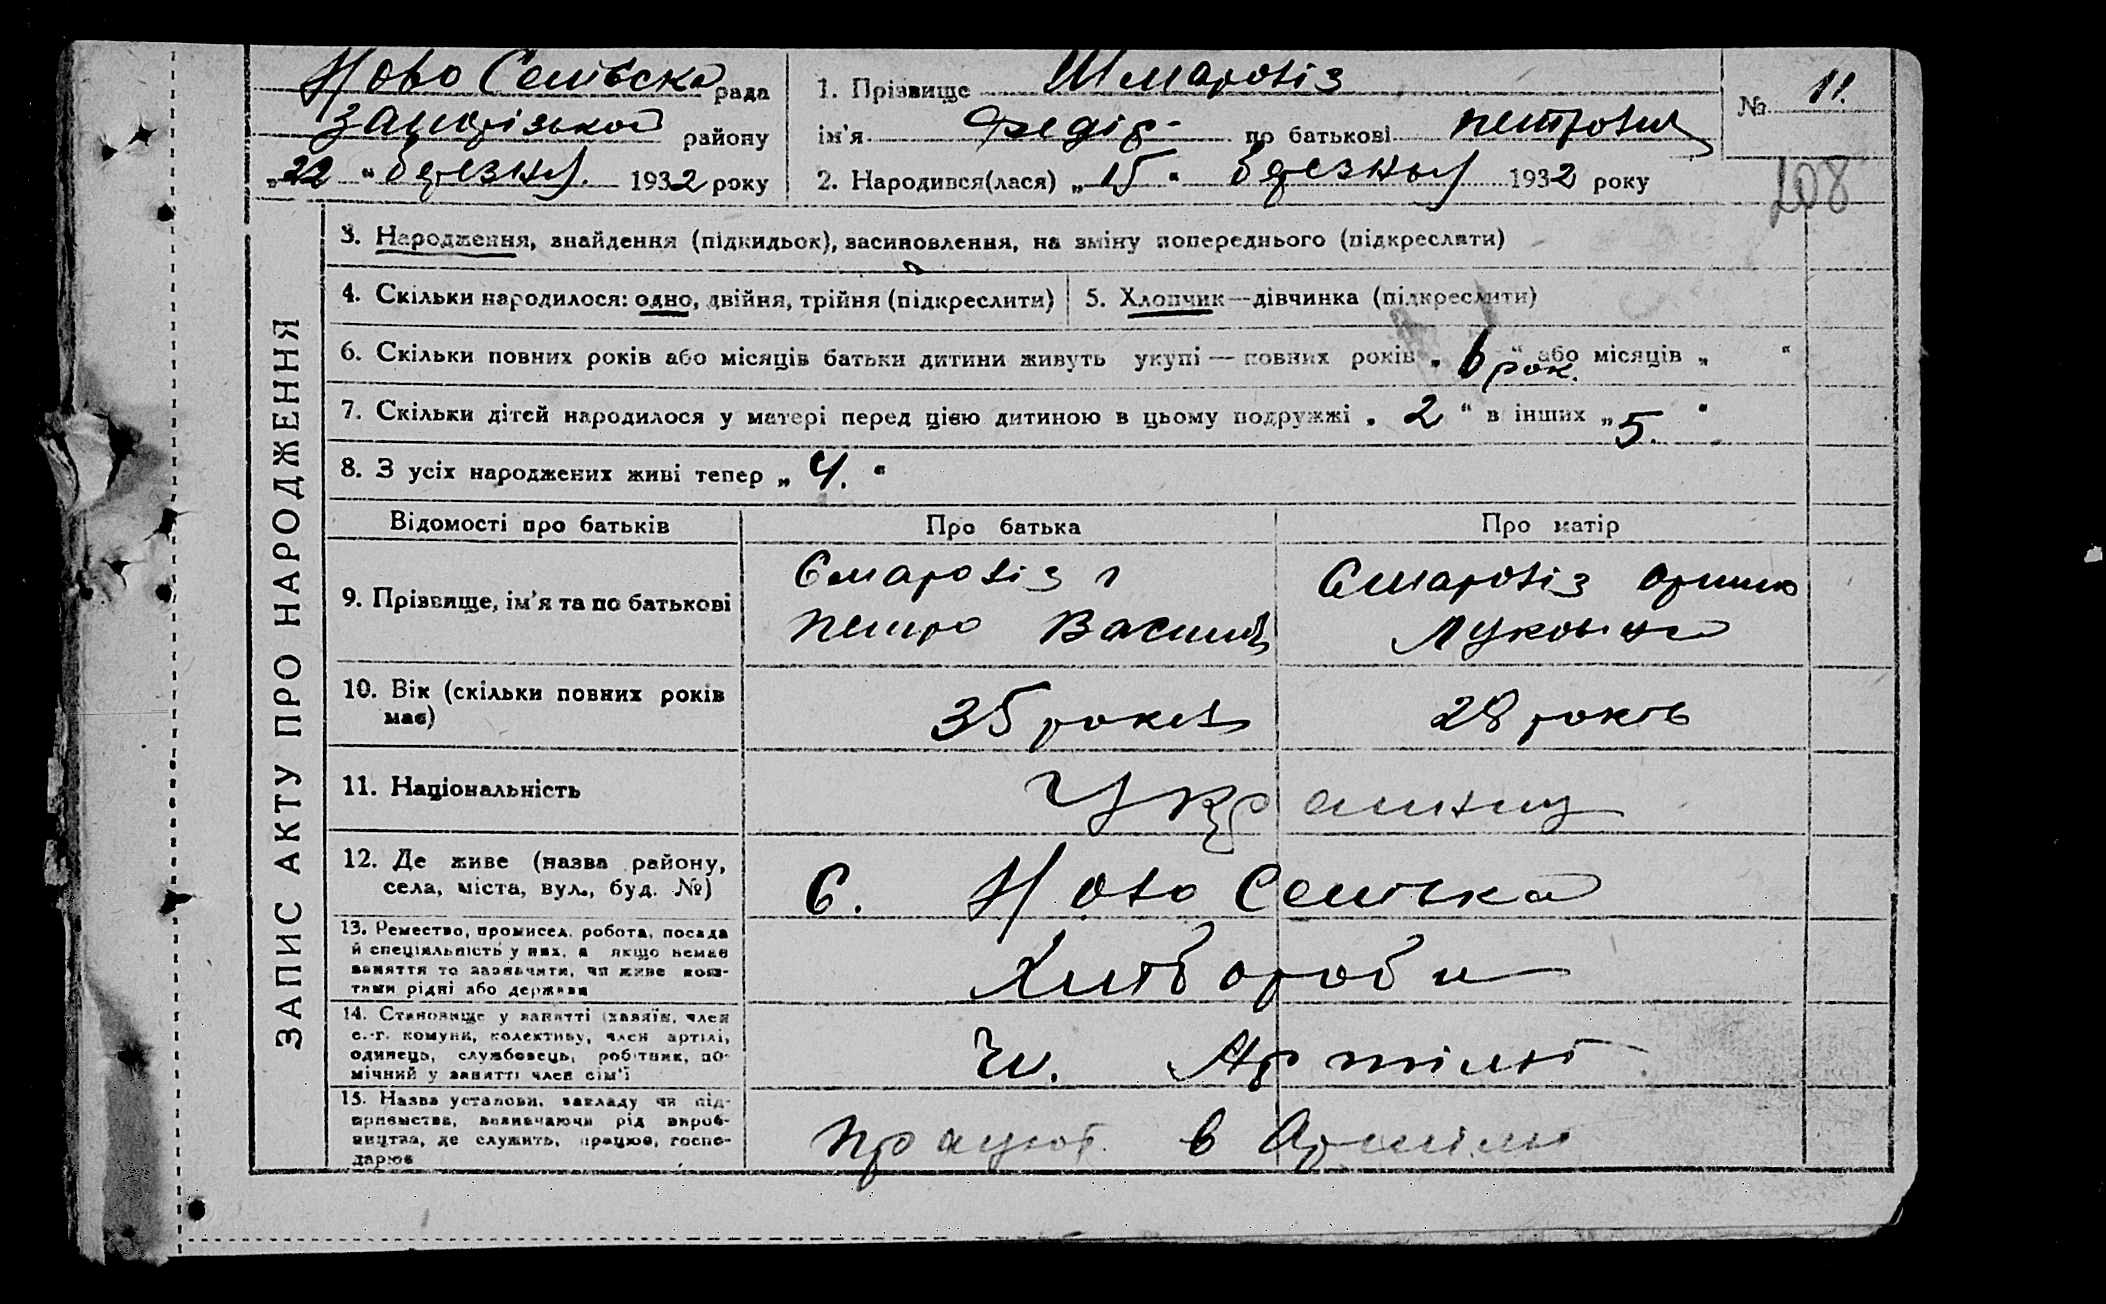 Ново Сельська рада
Запорізькой району
„22“ березня. 1932 року
1. Прізвище Шмаровіз
ім'я Федір по батькові петрович
2. Народився(лася) „15“ березня 1932 року
№ 11.
208
ЗАПИС АКТУ ПРО НАРОДЖЕННЯ
3. Народження, знайдення (підкидьок), засиновлення, на зміну попереднього (підкреслити)
4. Скільки народилося: одно, двійня, трійня (підкреслити)
5. Хлопчик—дівчинка (підкреслити)
6. Скільки повних років або місяців батьки дитини живуть укупі — повних років „6 рок.“ або місяців „ “
7. Скільки дітей народилося у матері перед цією дитиною в цьому подружжі „2“ в інших „5.“
8. З усіх народжених живі тепер „4.“
Відомості про батьків Про батька Про матір
9. Прізвище, ім'я та по батькові
Смаровіз
петро Васильов
Смаровіз орина
Луковна
10. Вік (скільки повних років має)
35 років
28 років
11. Національність
Украинци
12. Де живе (назва району,
села, міста, вул., буд. №)
С. Ново Селична
13. Ремество, промисел, робота, посада
й спеціяльність у них, а якщо немає
заняття то зазначити, чи живе кош-
тами рідні або держави
Хлібороби
14. Становище у занятті (хазяїн, член
с.-г. комуни, колективу, член артілі,
одинець, службовець, робітник, по-
мічний у занятті член сім'ї
Чл. Артілі
15. Назва установи, закладу чи під-
приємства, визначаючи рід вироб-
ництва, де служить, працює, госпо-
дарює
працює в Артілі